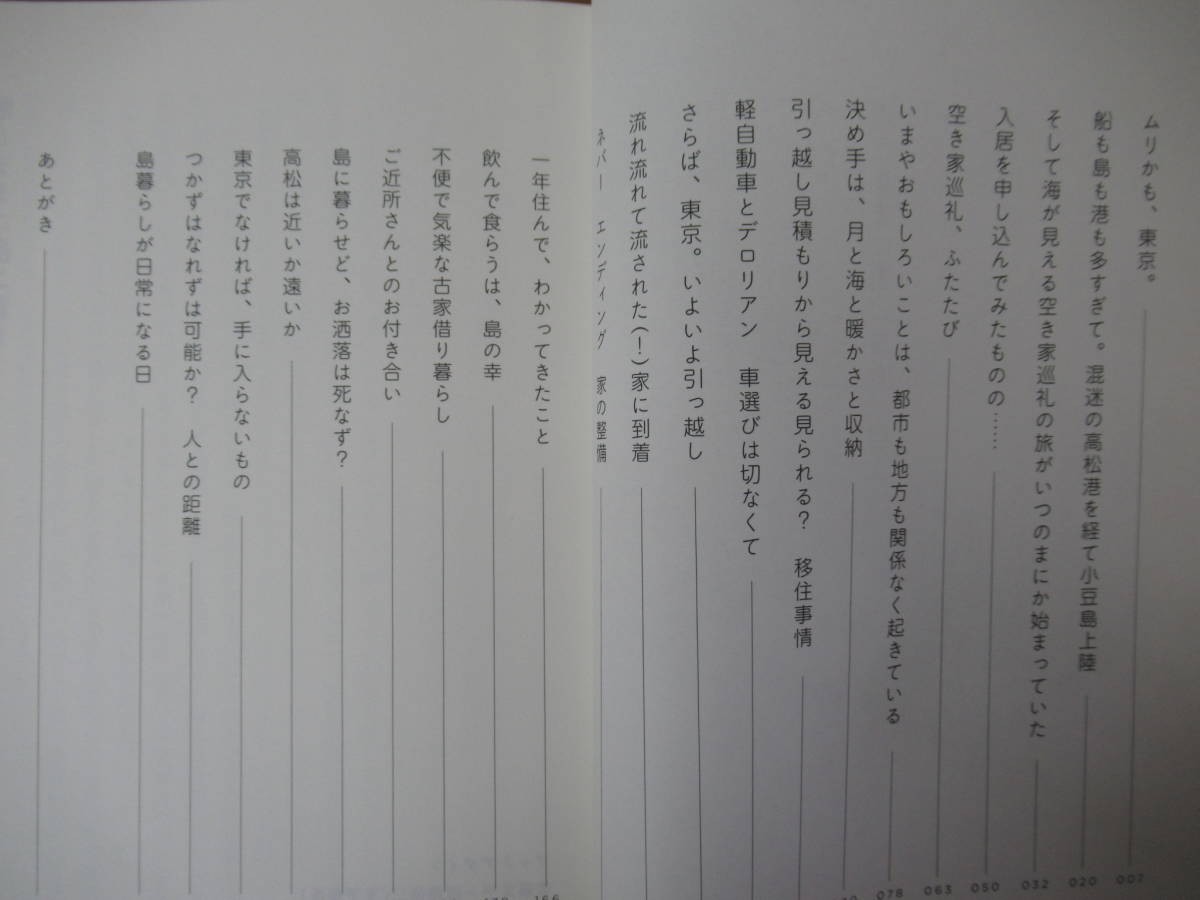 ムリかも、東京。 002
船も島も港も多すぎて。混迷の高松港を経て小豆島上陸 020
そして海が見える空き家巡礼の旅がいつのまにか始まっていた 032
入居を申し込んでみたものの…… 050
空き家巡礼、ふたたび 063
いまやおもしろいことは、都市も地方も関係なく起きている 078
決め手は、月と海と暖かさと収納
引っ越し見積もりから見える見られる？　移住事情
軽自動車とデロリアン　車選びは切なくて
さらば、東京。いよいよ引っ越し
流れ流れて流された(！)家に到着
ネバー　エンディング　家の整備
一年住んで、わかってきたこと 166
飲んで食らうは、島の幸
不便で気楽な古家借り暮らし
ご近所さんとのお付き合い
島に暮らせど、お洒落は死なず？
高松は近いか遠いか
東京でなければ、手に入らないもの
つかずはなれずは可能か？　人との距離
島暮らしが日常になる日
あとがき